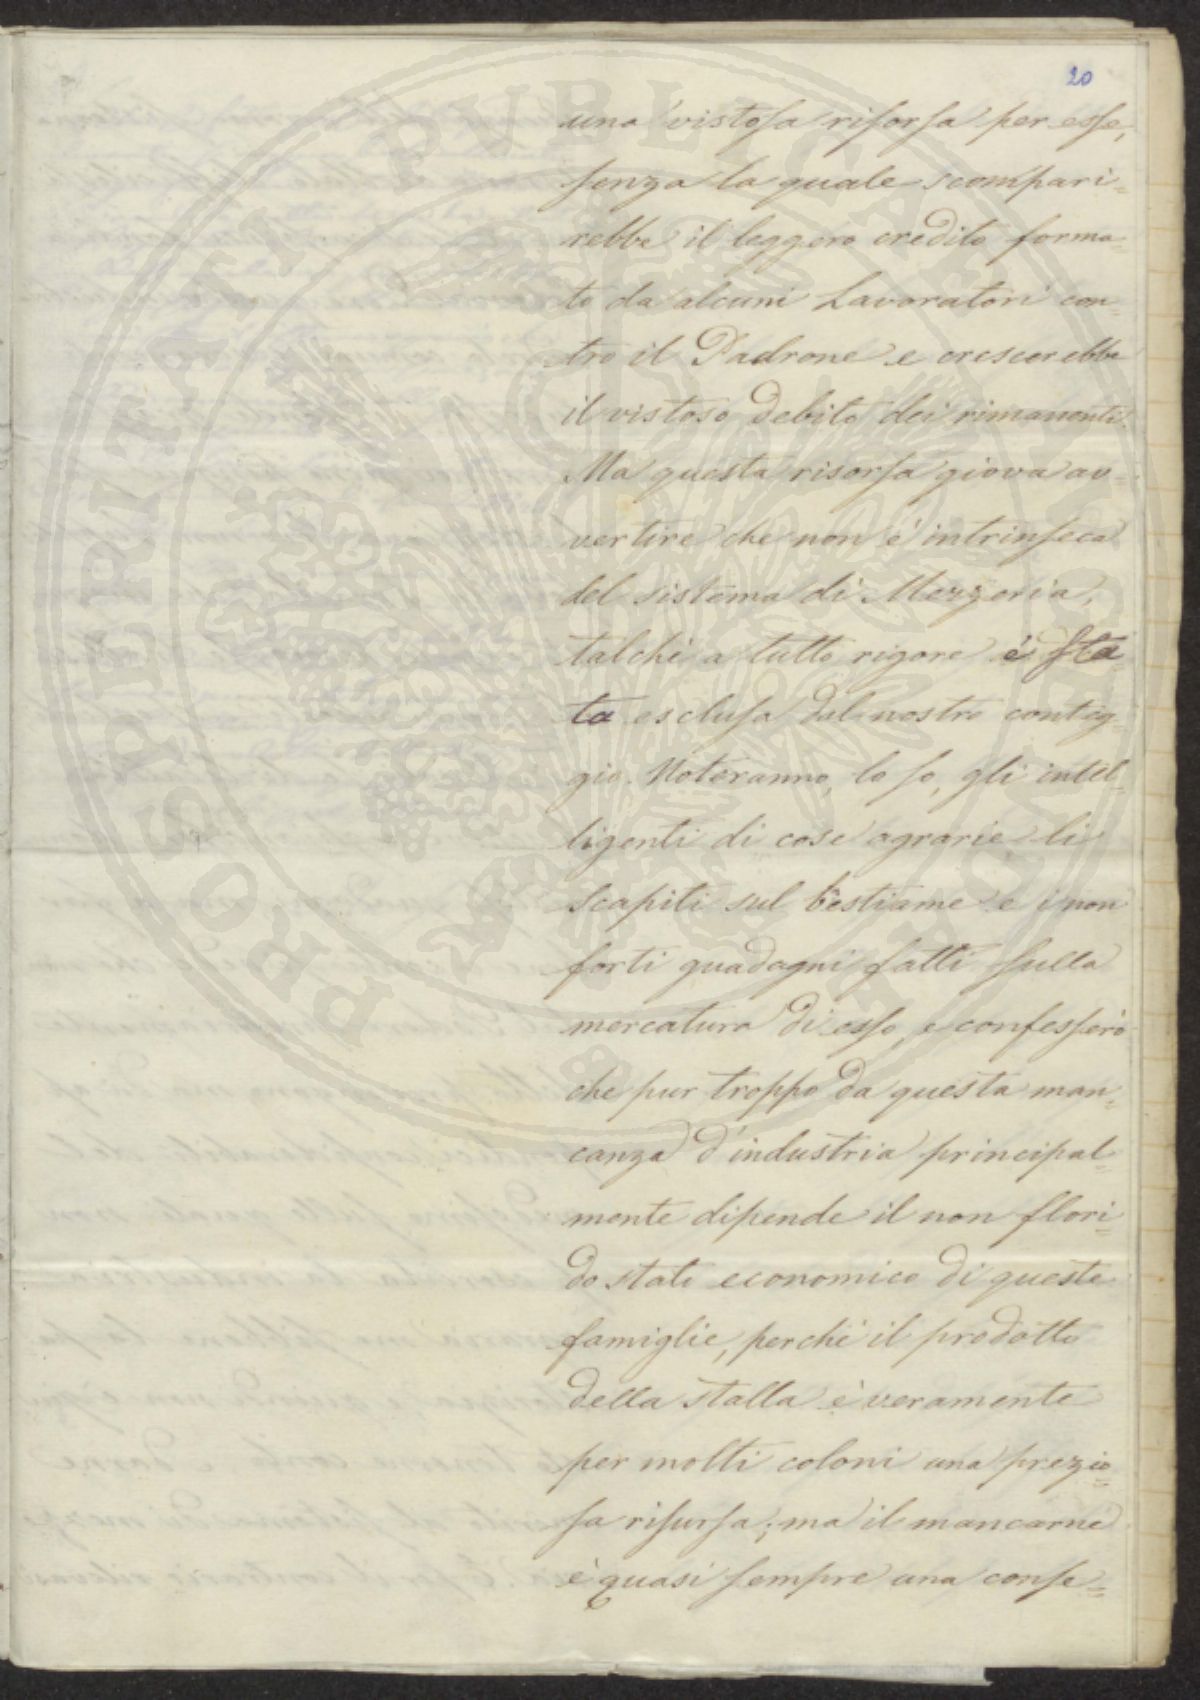 20
una vistosa risorsa per esse,
senza la quale scompari=
rebbe il leggero credito forma=
to da alcuni Lavoratori con=
tro il Padrone e crescerebbe
il vistoso debito dei rimanenti.
Ma questa risorsa giova av=
vertire che non è intrinseca
del sistema di Mezzeria,
talchè a tutto rigore è sta
ta esclusa dal nostro conteg=
gio. Noteranno, lo so, gli intel=
ligenti di cose agrarie li
scapiti sul bestiame e i non
forti guadagni fatti sulla
mercatura di esso, e confesserò
che pur troppo da questa man=
canza d'industria principal=
mente dipende il non flori=
do stato economico di queste
famiglie, perchè il prodotto
della stalla è veramente
per molti coloni una prezio=
sa risursa; ma il mancarne
è quasi sempre una conse=
PROSPERITATI PUBLICAE